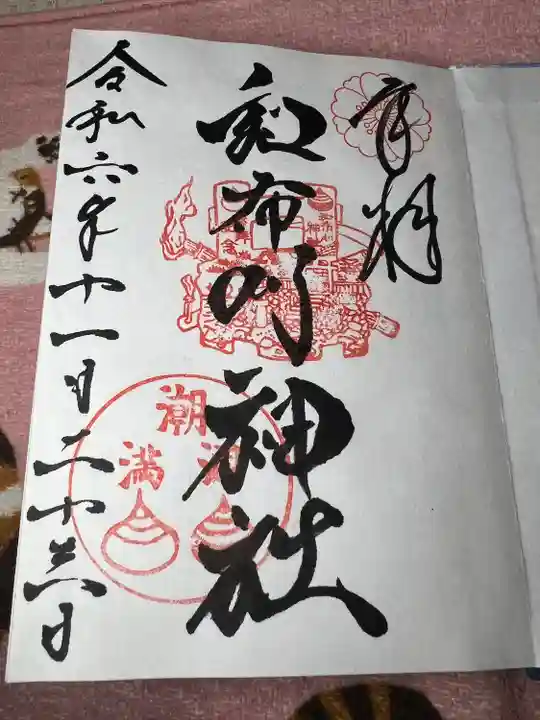 奉拝
和布刈神社
令和六年十一月二十六日
潮
満